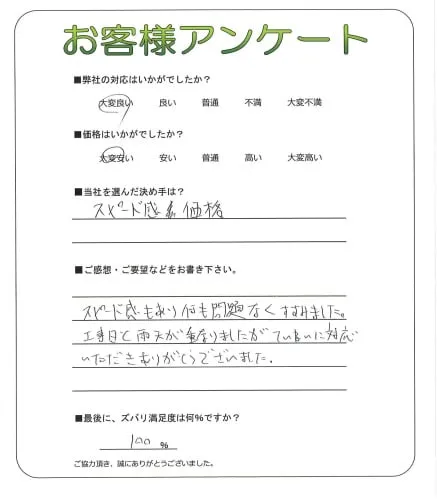 お客様アンケート
■弊社の対応はいかがでしたか？
大変良い 良い 普通 不満 大変不満
■価格はいかがでしたか？
大変安い 安い 普通 高い 大変高い
■当社を選んだ決め手は？
スピード感 価格
■ご感想・ご要望などをお書き下さい。
スピード感もあり何も問題なくすすみました。
工事日と雨天が重なりましたがていねいに対応
いただきありがとうございました。
■最後に、ズバリ満足度は何%ですか？
100 %
ご協力頂き、誠にありがとうございました。